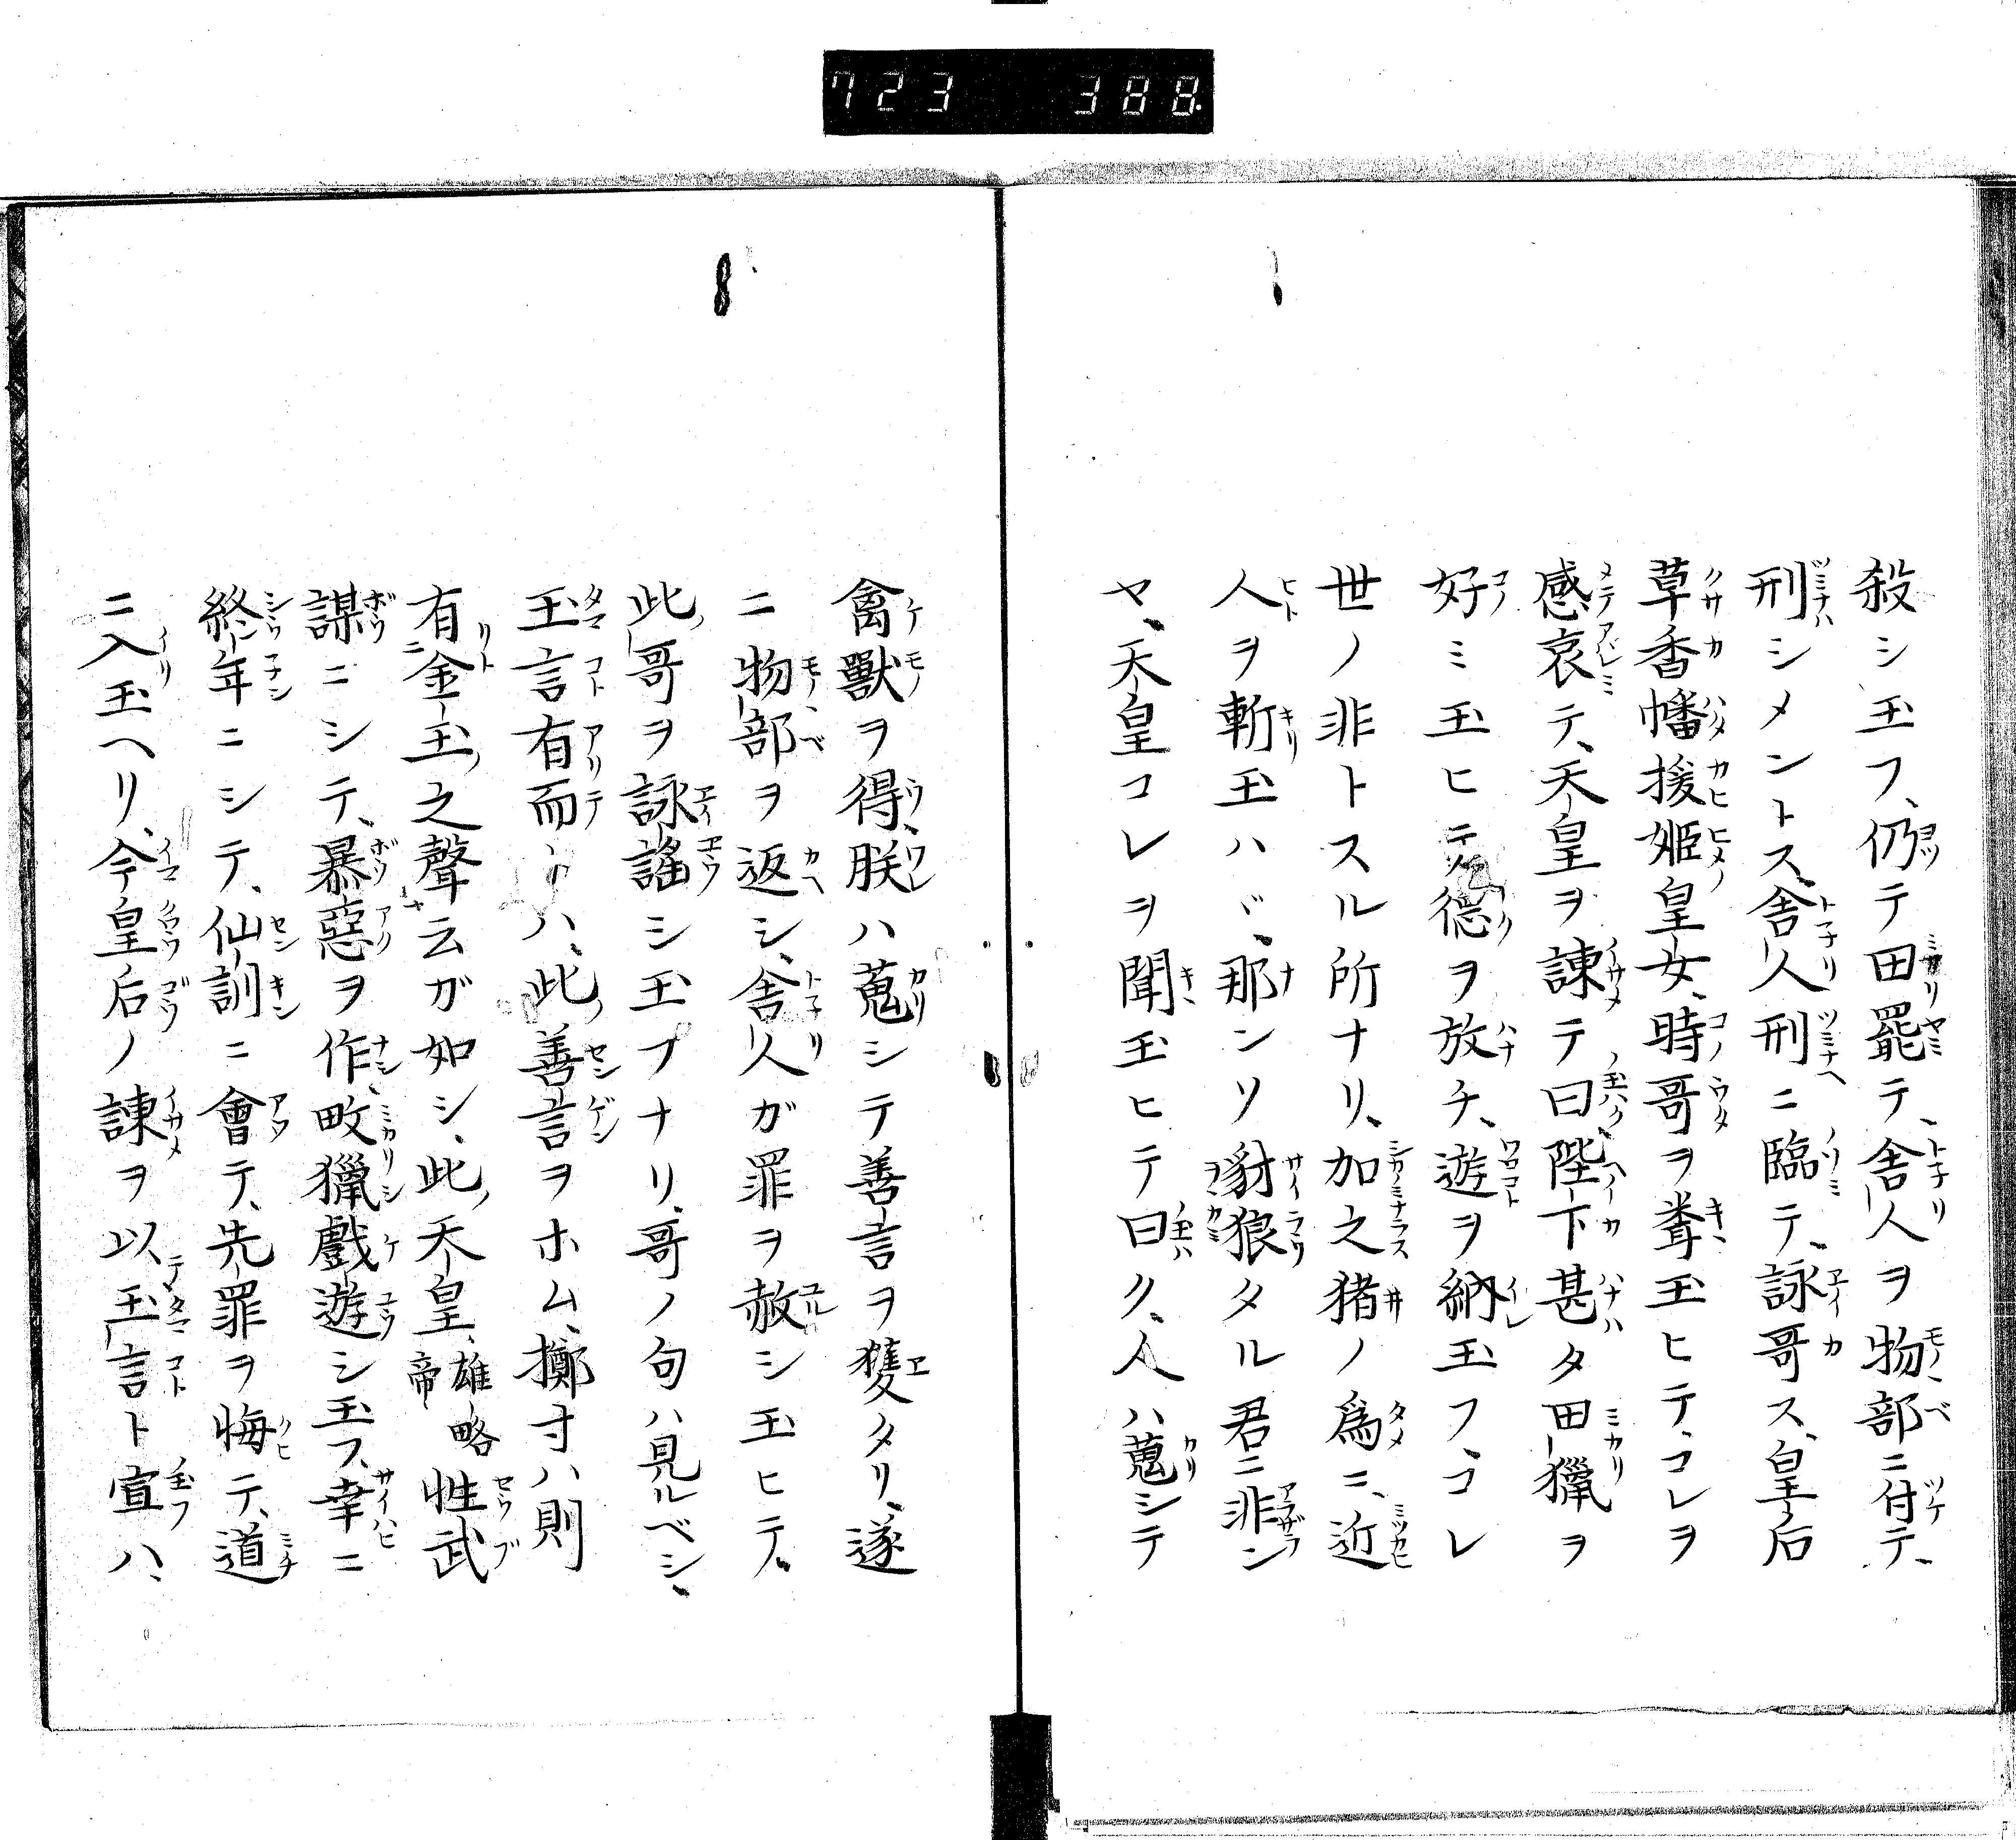 723 388
殺シ玉フ、仍テ田罷テ、舎人ヲ物部ニ付テ、
刑シメントス、舎人刑ニ臨テ、詠哥ス、皇后
草香幡援姫皇女、時哥ヲ聋玉ヒテ、コレヲ
感哀テ、天皇ヲ諌テ曰、陛下甚タ田獵ヲ
好ミ玉ヒテ、徳ヲ放チ、遊ヲ納玉フ、コレ
世ノ非トスル所ナリ、加之猪ノ爲ニ、近
人ヲ斬玉ハヾ、那ンソ豺狼タル君ニ非ン
ヤ、天皇コレヲ聞玉ヒテ曰ク、人ハ蒐シテ
禽獸ヲ得、朕ハ蒐シテ善言ヲ獲タリ、遂
ニ物部ヲ返シ、舎人ガ罪ヲ赦シ玉ヒテ、
此哥ヲ詠謡シ玉フナリ、哥ノ句ハ見ルベシ、
玉言有而ハ、此善言ヲホム、擲寸ハ則
有金玉之聲云ガ如シ、此天皇、雄略帝性武
謀ニシテ、暴惡ヲ作、畋獵戲遊シ玉フ、幸ニ
終年ニシテ、仙訓ニ會テ、先罪ヲ悔テ、道
ニ入玉ヘリ、今皇后ノ諌ヲ以玉言ト宣ハ、